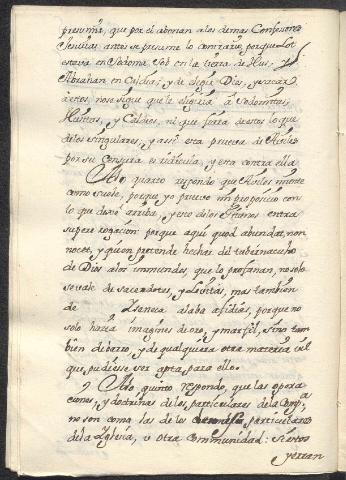 presumir, que por el abonan a los demas Confesores
Jesuitas, antes se presume lo contrario, porque Lot
estava en Sodoma, Job en la tierra de Hus, y
Abrahan en Caldea; y de elegir Dios, y sacar
à estos, no se sigue que eligiria à Sodomitas,
Husitas, y Caldeos, ni que fuera de estos lo que
de los singulares, y assi esta prueva de Aviles
por su Consulta es ridicula, y esta contra ella
Alo quarto respondo que Aviles miente
como suele, porque yo pruevo mi proposicion con
lo que dexo arriba, y eso de los entra
supererogacion porque aqui quod abundat, non
nocet, y quien pretende hechar del tabernaculo
de Dios alos inmundos, que lo profanan, no solo
se vale de sacerdotes, y Levitas, mas tambien
de Zeneca alaba a fidias, porque no
solo hazia imagenes de oro, y marfil, sino tam
bien de barro, y de qualquiera otra materia vil
que pudiese ser apta para ello.
Alo quinto respondo, que las opera
ciones, y doctrinas de los particulares de la Compª
no son como las de los particulares
de la Yglesia, u otra Communidad: si estos
yerran